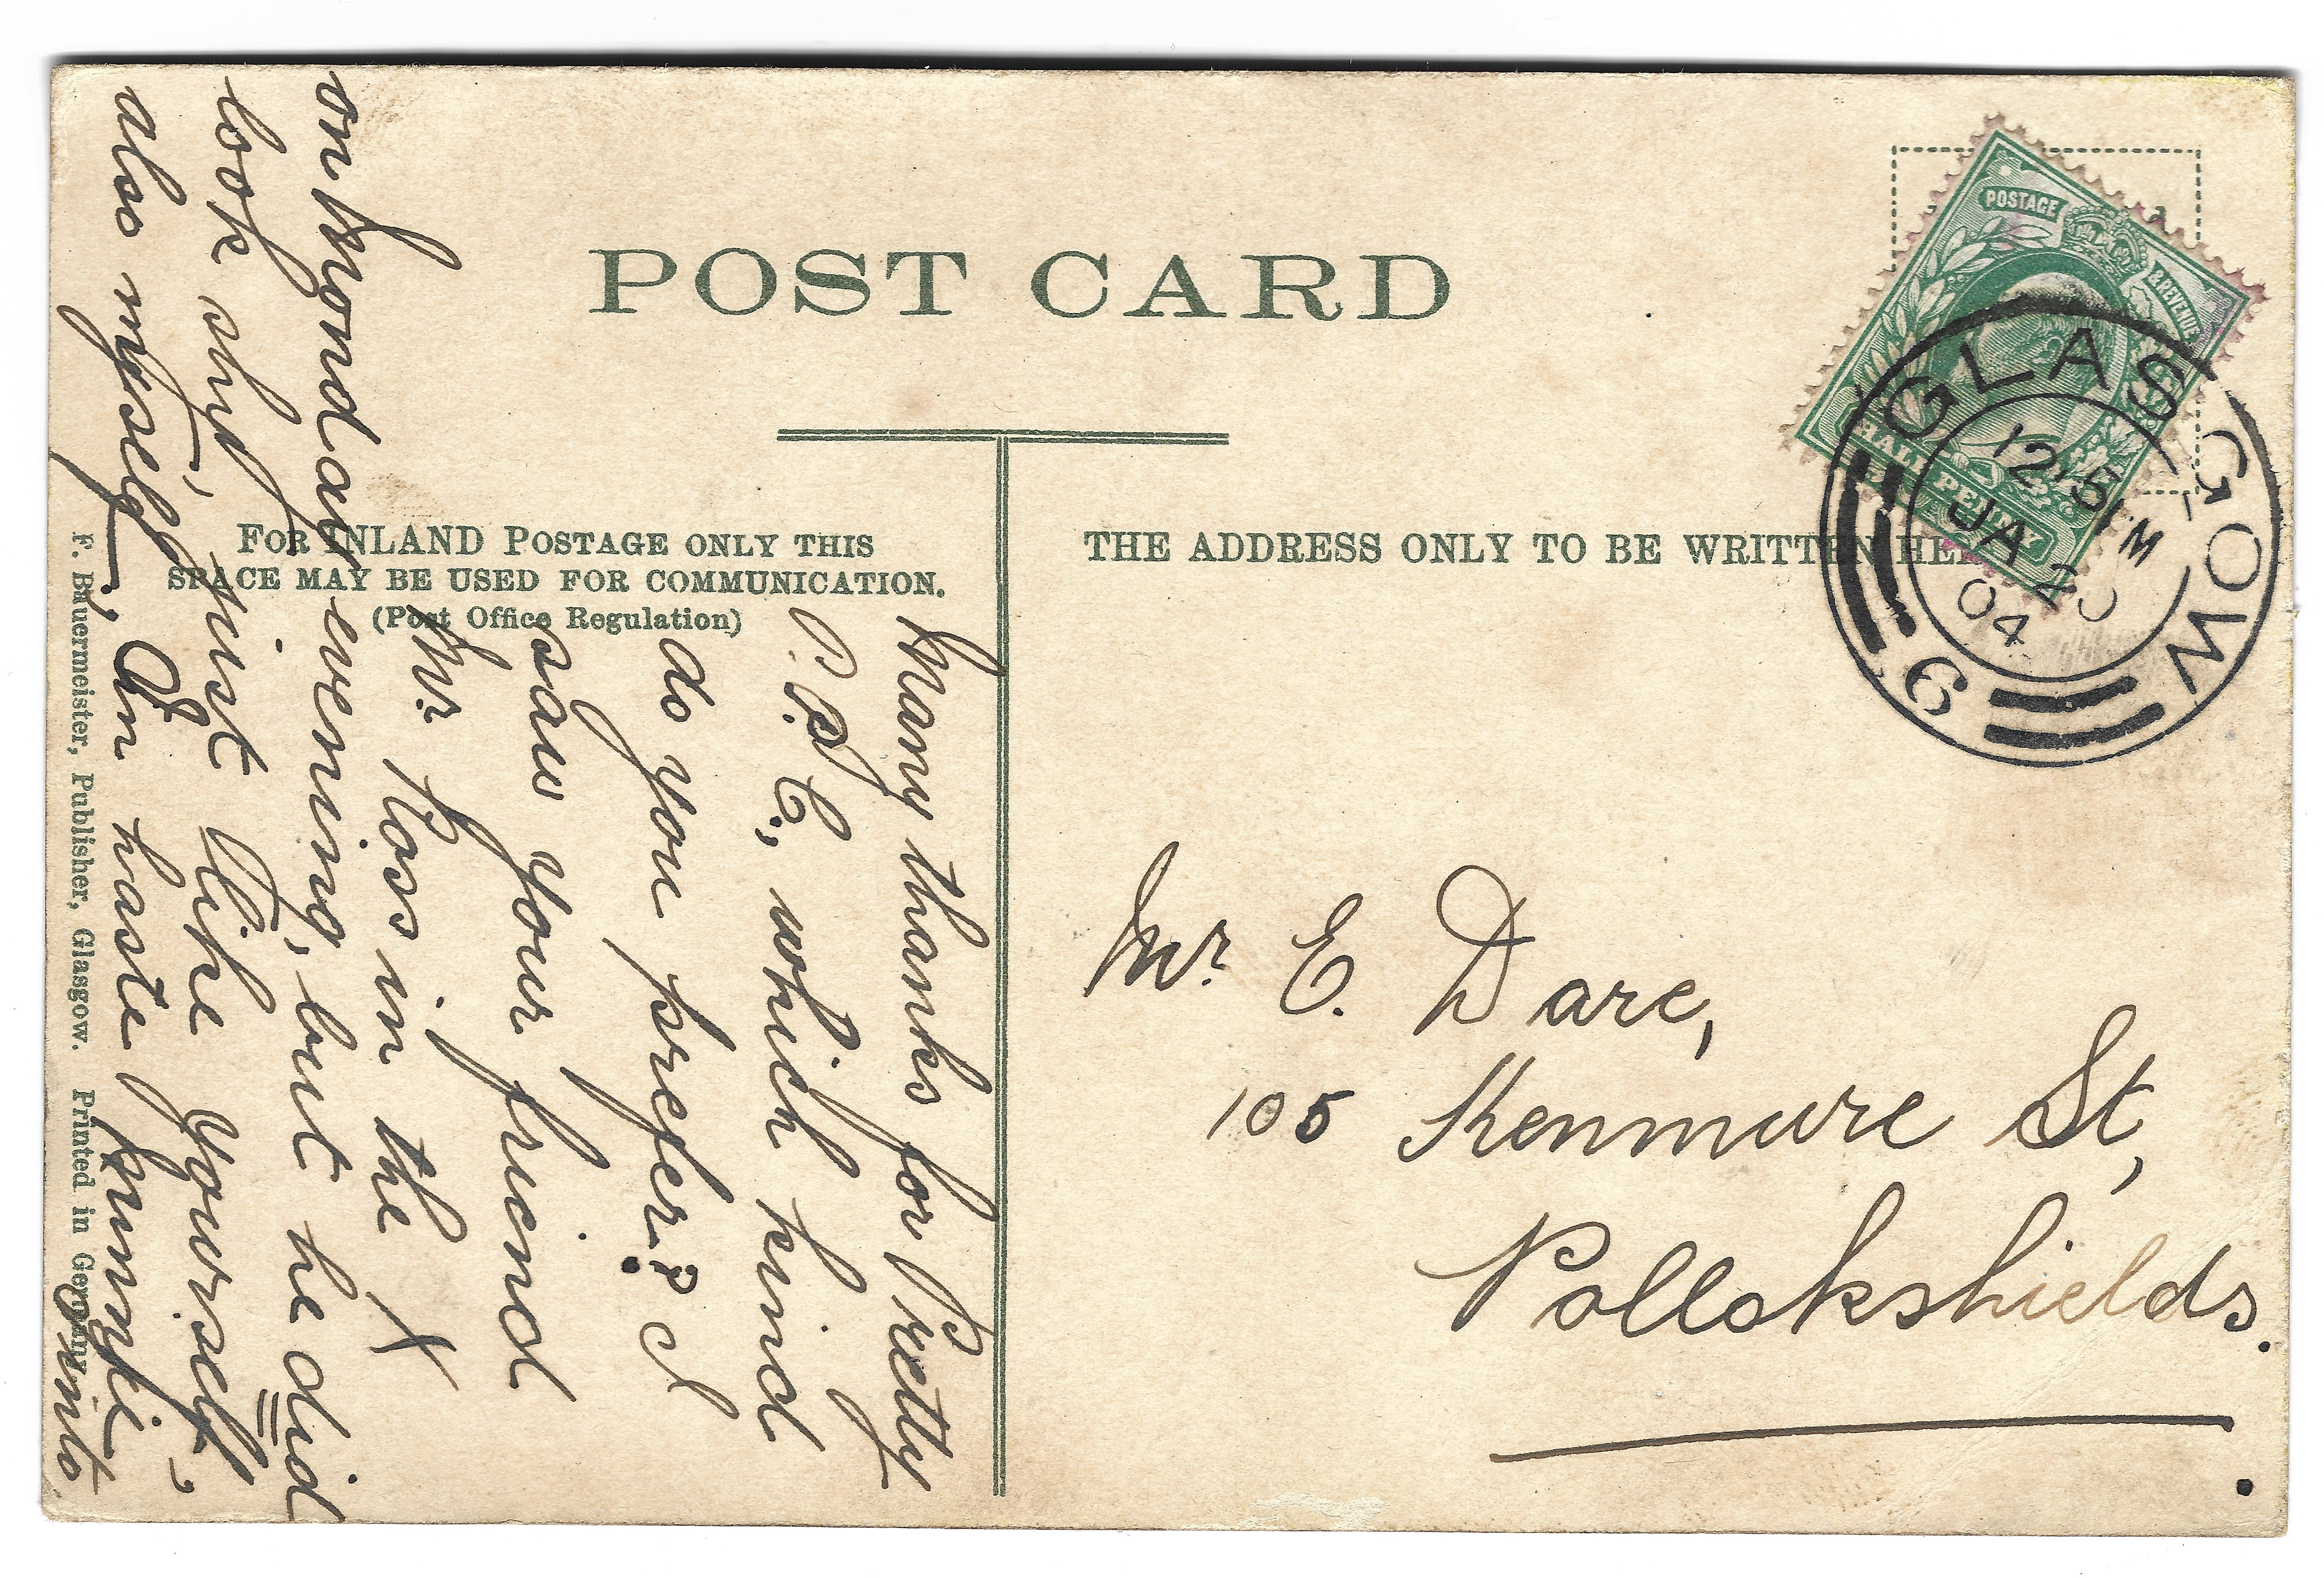 POST CARD
FOR INLAND POSTAGE ONLY THIS
SPACE MAY BE USED FOR COMMUNICATION.
(Post Office Regulation)
THE ADDRESS ONLY TO BE WRITTEN HE
POSTAGE
& REVENUE
HALF PENNY
GLASGOW
12 15 M
JA 2
04
9
Many thanks for Pretty
P. P. C., which kind
do you prefer? I
saw your friend
Mr Ross in the X
on Monday evening, but he did
look shy, just like yourself,
also myself, In haste
Mr. E. Dare,
105 Kenmure St,
Pollokshields.
F. Bauermeister, Publisher, Glasgow. Printed in Germany